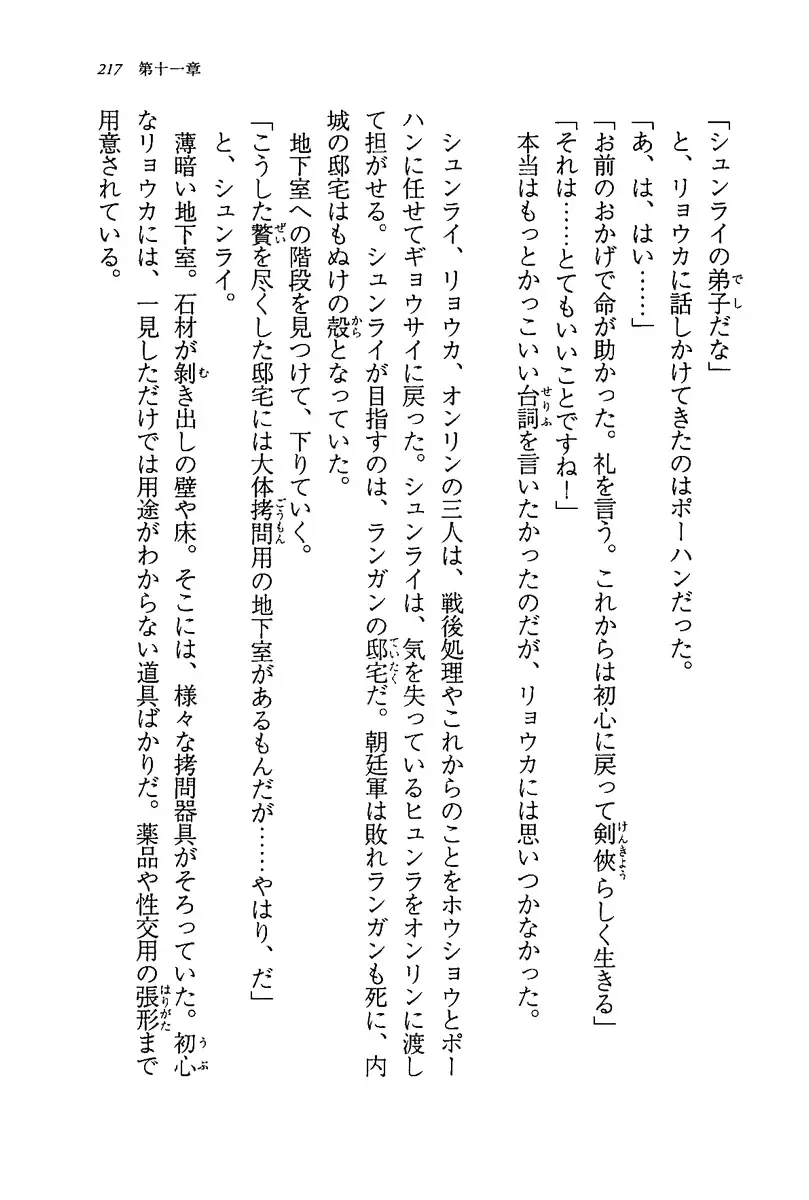 217 第十一章
「シュンライの弟子だな」
と、リョウカに話しかけてきたのはポーハンだった。
「あ、は、はい……」
「お前のおかげで命が助かった。礼を言う。これからは初心に戻って剣俠らしく生きる」
「それは……とてもいいことですね！」
本当はもっとかっこいい台詞を言いたかったのだが、リョウカには思いつかなかった。
シュンライ、リョウカ、オンリンの三人は、戦後処理やこれからのことをホウショウとポー
ハンに任せてギョウサイに戻った。シュンライは、気を失っているヒュンラをオンリンに渡し
て担がせる。シュンライが目指すのは、ランガンの邸宅だ。朝廷軍は敗れランガンも死に、内
城の邸宅はもぬけの殻となっていた。
地下室への階段を見つけて、下りていく。
「こうした贅を尽くした邸宅には大体拷問用の地下室があるもんだが……やはり、だ」
と、シュンライ。
薄暗い地下室。石材が剝き出しの壁や床。そこには、様々な拷問器具がそろっていた。初心
なリョウカには、一見しただけでは用途がわからない道具ばかりだ。薬品や性交用の張形まで
用意されている。